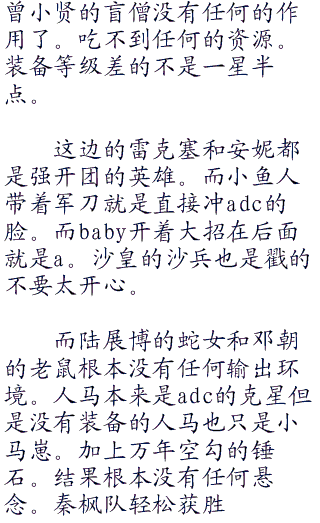 曾小贤的盲僧没有任何的作
用了。吃不到任何的资源。
装备等级差的不是一星半
点。
这边的雷克塞和安妮都
是强开团的英雄。而小鱼人
带着军刀就是直接冲adc的
脸。而baby开着大招在后面
就是a。沙皇的沙兵也是戳的
不要太开心。
而陆展博的蛇女和邓朝
的老鼠根本没有任何输出环
境。人马本来是adc的克星但
是没有装备的人马也只是小
马崽。加上万年空勾的锤
石。结果根本没有任何悬
念。秦枫队轻松获胜